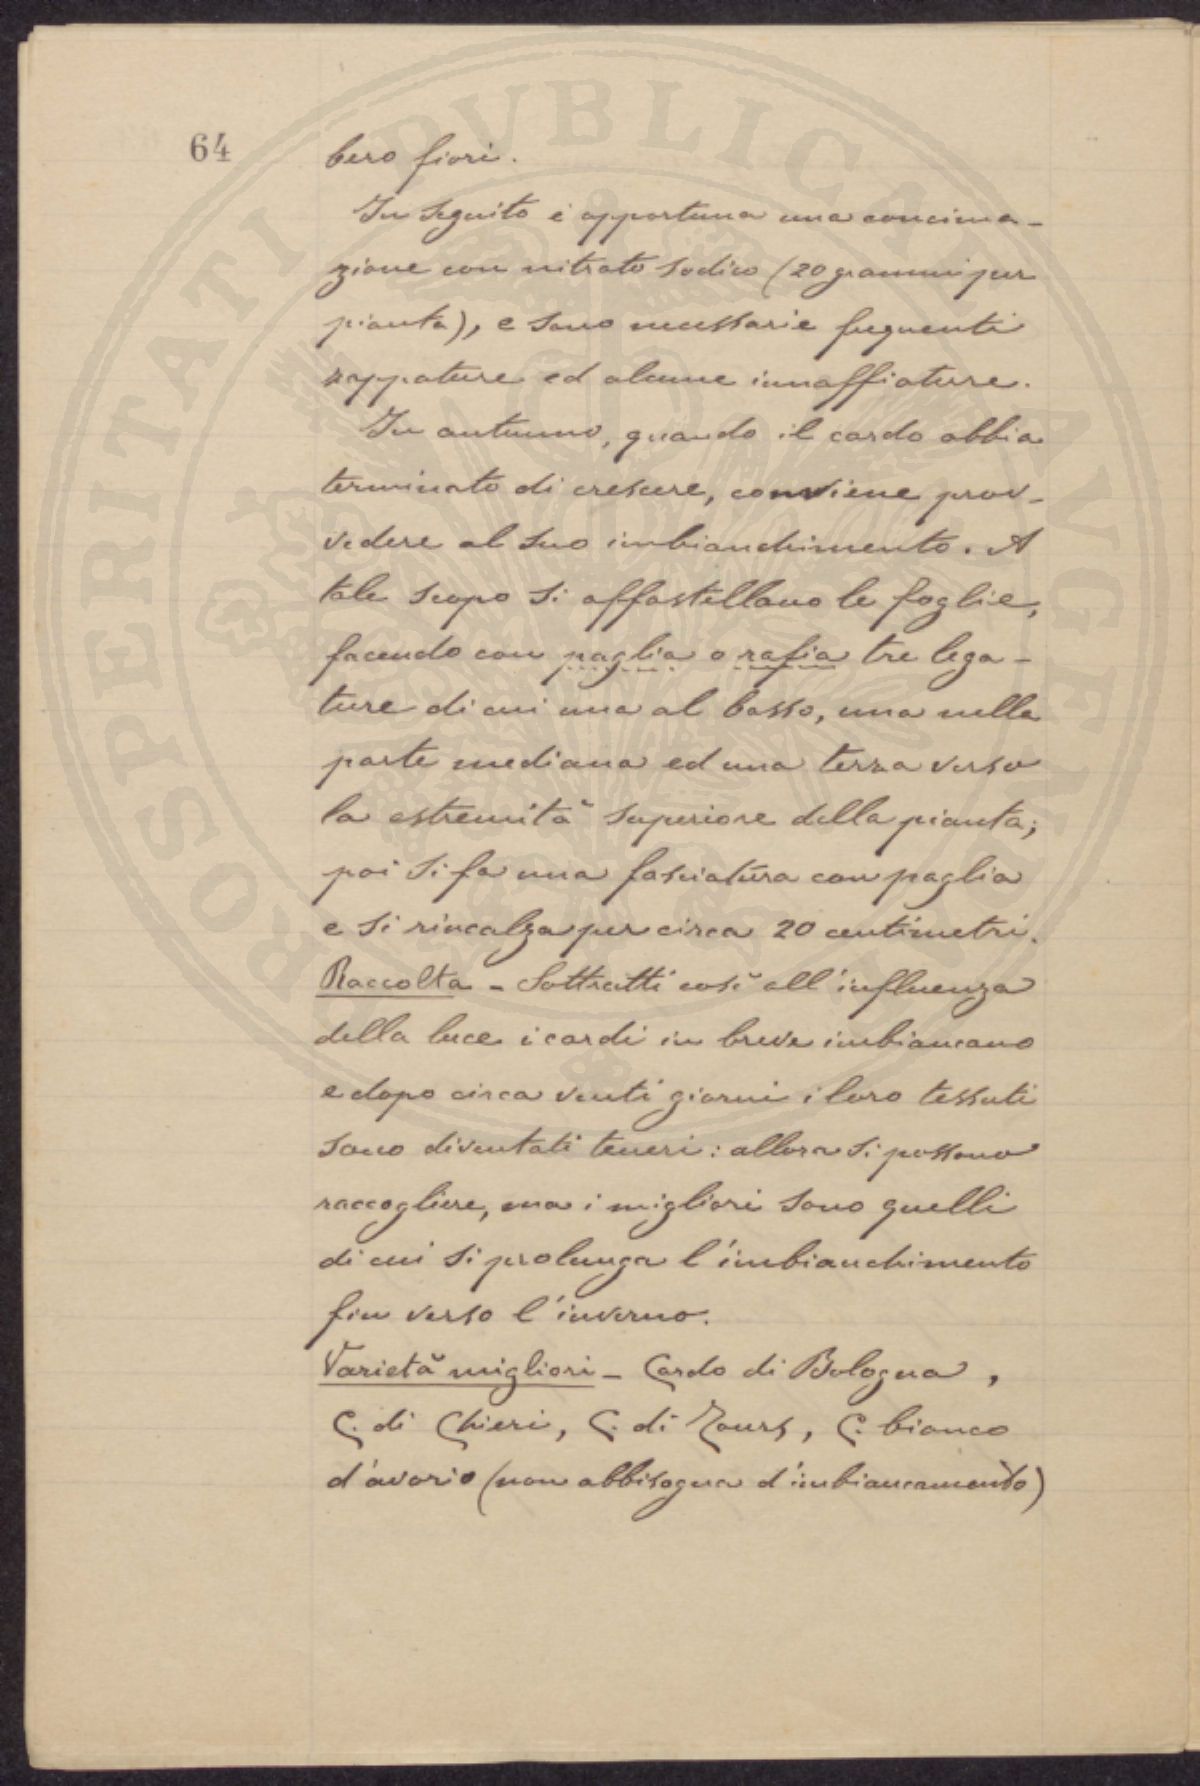 64
bero fiori.
In seguito è opportuna una concima-
zione con nitrato sodico (20 grammi per
pianta), e sono necessarie frequenti
zappature ed alcune innaffiature.
In autunno, quando il cardo abbia
terminato di crescere, conviene prov-
vedere al suo imbianchimento. A
tale scopo si affastellano le foglie,
facendo con paglia o rafia tre lega-
ture di cui una al basso, una nella
parte mediana ed una terza verso
la estremità superiore della pianta;
poi si fa una fasciatura con paglia
e si rincalza per circa 20 centimetri.
Raccolta - Sottratti così all'influenza
della luce i cardi in breve imbiancano
e dopo circa venti giorni i loro tessuti
sono diventati teneri: allora si possono
raccogliere, ma i migliori sono quelli
di cui si prolunga l'imbianchimento
fin verso l'inverno.
Varietà migliori - Cardo di Bologna,
C. di Chieri, C. di Tours, C. bianco
d'avorio (non abbisogna d'imbiancamento)
PROSPERITATI PVBLICAE AVGENDAE